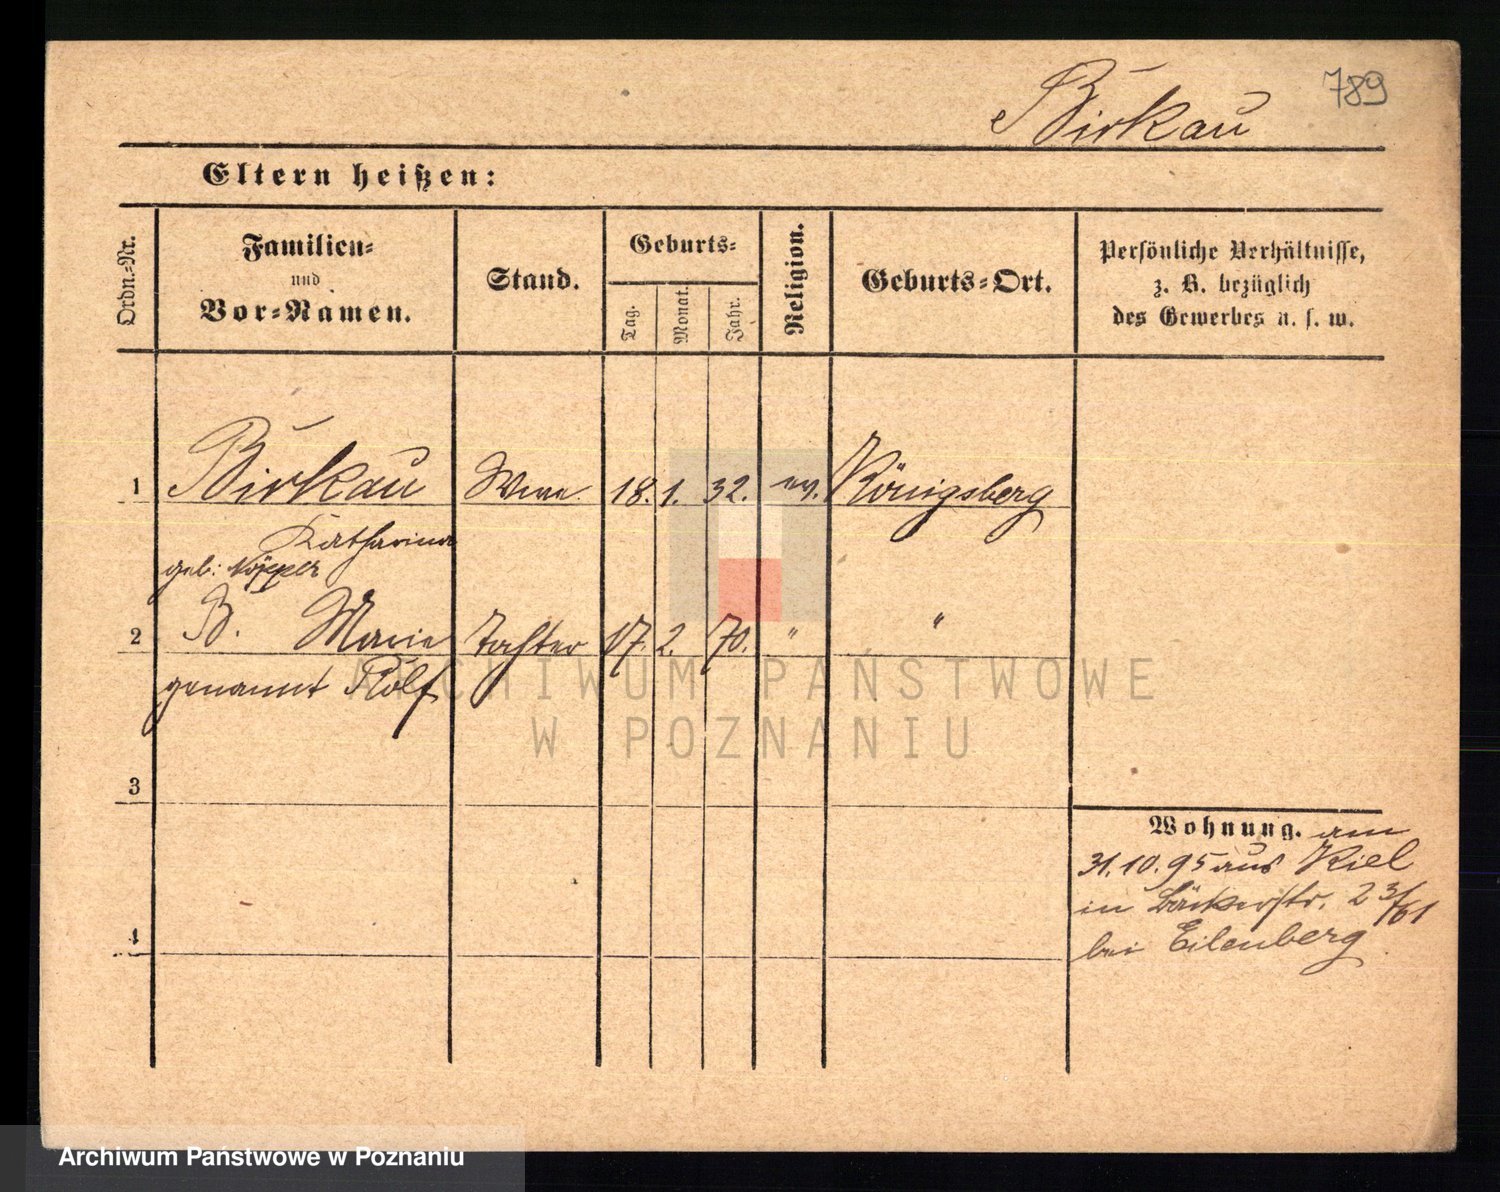 789
Birkau
Eltern heißen:
Ordn.-Nr.
Familien-
und
Vor-Namen.
Stand.
Geburts-
Tag.
Monat.
Jahr.
Religion.
Geburts-Ort.
Persönliche Verhältnisse,
z. B. bezüglich
des Gewerbes u. s. w.
1 Birkau Wwe. 18. 1. 32. ev. Königsberg
Katharina
geb: Köpper
2 B. Marie Tochter 17. 2. 70. " "
genannt Rolf
3
4
Wohnung. am
31. 10. 95 aus Kiel
in Bäckerstr. 2 3/61
bei Eilenberg
ARCHIWUM PAŃSTWOWE
W POZNANIU
Archiwum Państwowe w Poznaniu